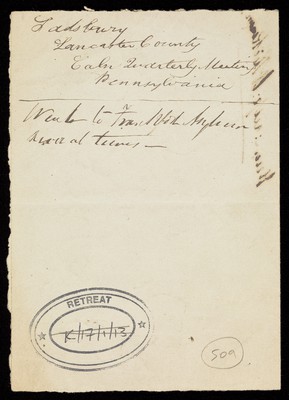 Sadsbury
Lancaster County
Caln Quarterly Meeting
Pennsylvania
to Asylum
several times —
RETREAT
K/17/1/13
509